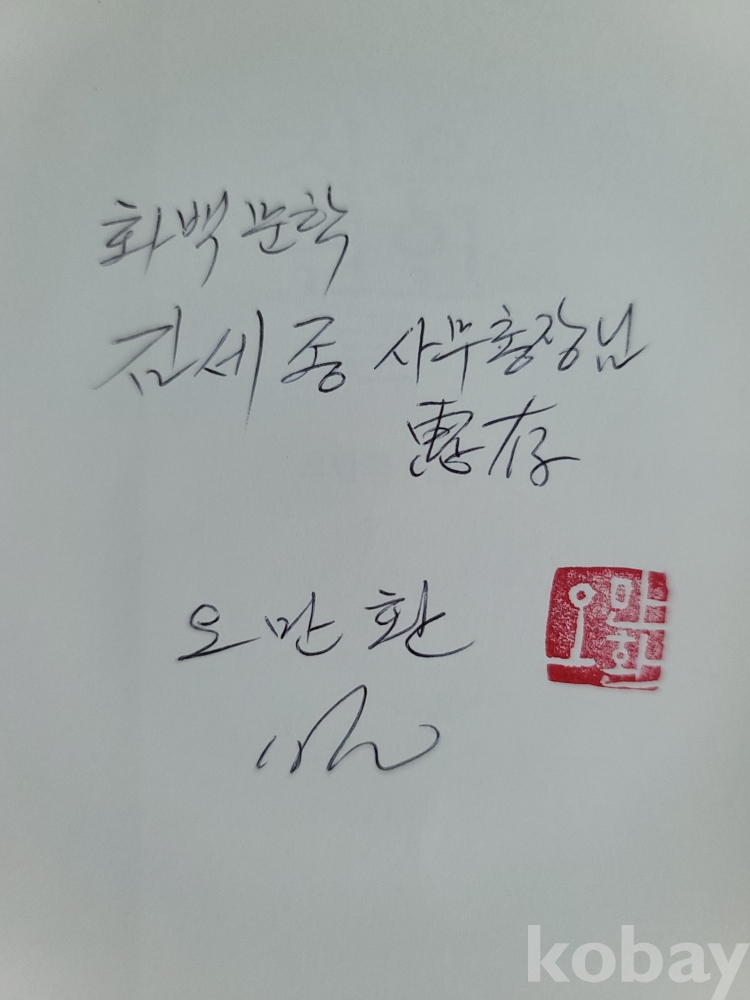 화백문학
김세종 사무총장님
惠存
오만환
오만환
kobay